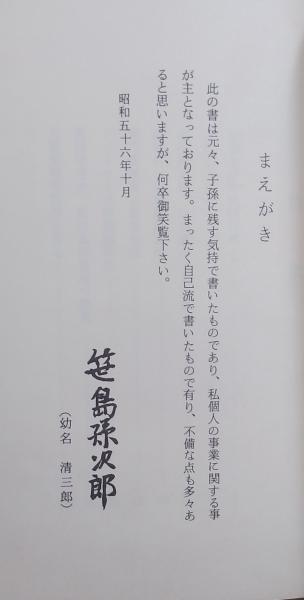 まえがき
此の書は元々、子孫に残す気持で書いたものであり、私個人の事業に関する事
が主となっております。まったく自己流で書いたもので有り、不備な点も多々あ
ると思いますが、何卒御笑覧下さい。
昭和五十六年十月
笹島孫次郎
（幼名　清三郎）